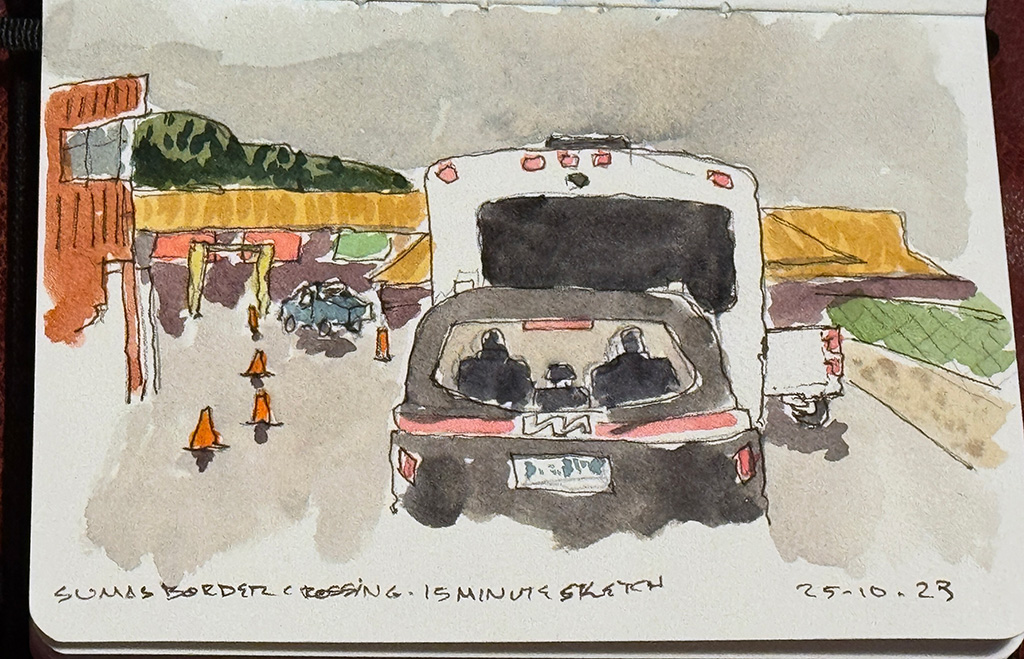 SUMAS BORDER CROSSING. 15 MINUTE SKETCH 25-10.23